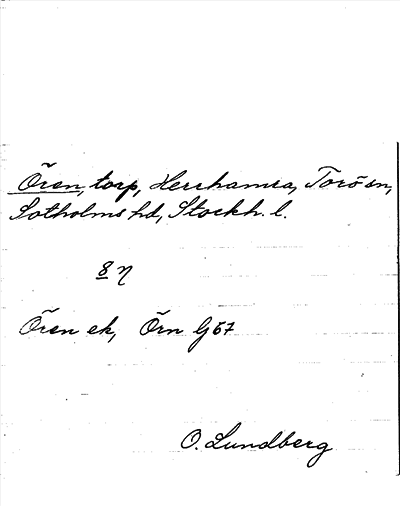 Ören, torp, Herrhamra, Torö sn,
Sotholms hd, Stockh. l.
Ören ek, Örn G67
O. Lundberg